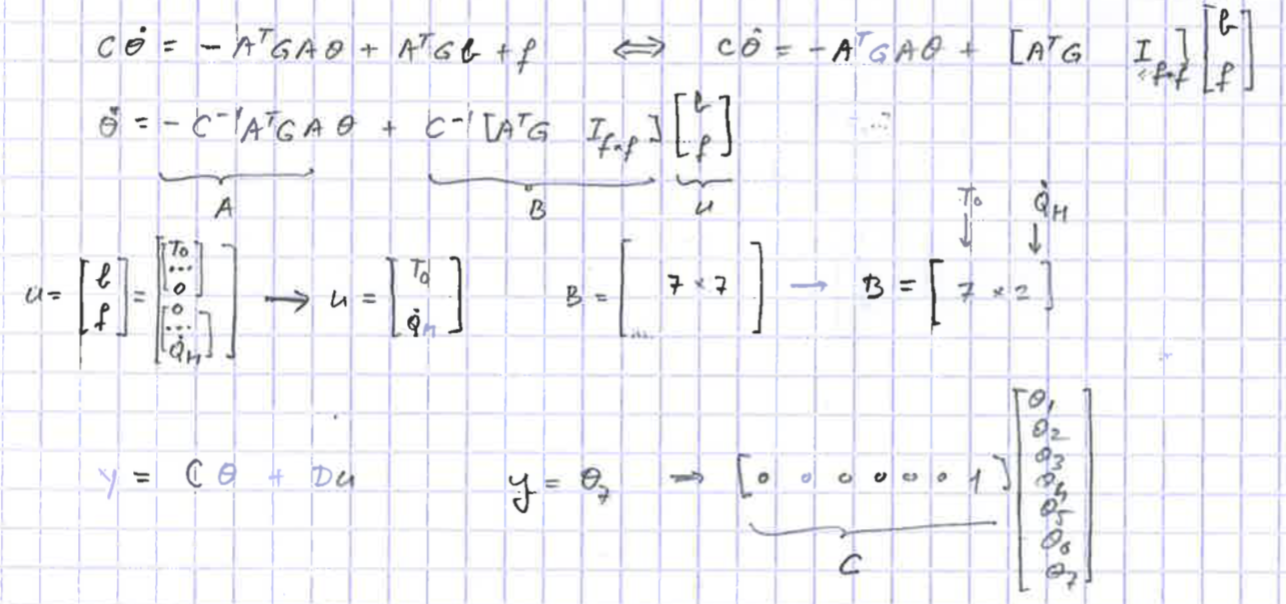 Cθ̇ = - AᵀGAθ + AᵀGb + f ⟺ Cθ̇ = - AᵀGAθ + [AᵀG I_{f×f}] [b f]
θ̇ = - C⁻¹AᵀGA θ + C⁻¹[AᵀG I_{f×f}] [b f]
A B u
T₀ Q̇_H
↓ ↓
u = [b f] = [[T₀ ... 0] [0 ... Q̇_H]] → u = [T₀ Q̇_H] B = [7×7 ...] → B = [7×2]
y = Cθ + Du y = θ₇ → [0 0 0 0 0 0 1] [θ₁ θ₂ θ₃ θ₄ θ₅ θ₆ θ₇]
C